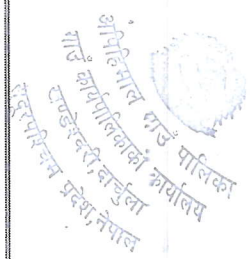 अपिहिमाल गाउँ पालिका
गाउँ कार्यपालिकाको कार्यालय
दार्चुला
सुदूरपश्चिम प्रदेश, नेपाल